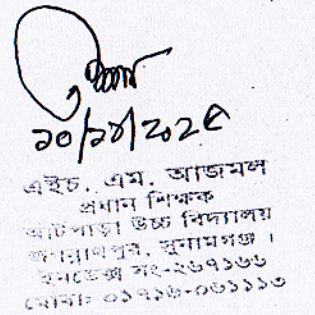 ১০/১২/২০২৫
এইচ. এম. আজমল
প্রধান শিক্ষক
আটপাড়া উচ্চ বিদ্যালয়
জগন্নাথপুর, সুনামগঞ্জ ।
ইনডেক্স নং-২৬৭১৬৬
মোবা: ০১৭১৬-০৬১১১৩